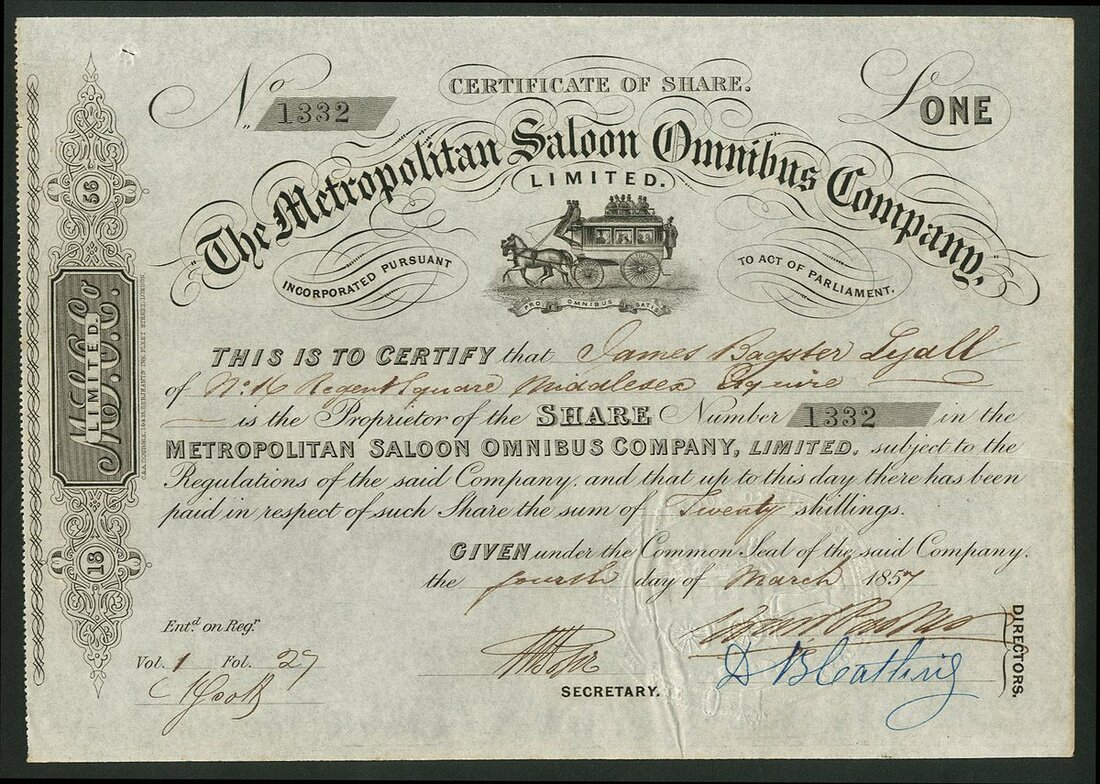 No. 1332
CERTIFICATE OF SHARE.
£ ONE
"The Metropolitan Saloon Omnibus Company,"
LIMITED.
INCORPORATED PURSUANT TO ACT OF PARLIAMENT.
PRO OMNIBUS SATIS
THIS IS TO CERTIFY that James Bagster Lyall
of No. 16 Regent Square Middlesex Esquire
is the Proprietor of the SHARE Number 1332 in the
METROPOLITAN SALOON OMNIBUS COMPANY, LIMITED. subject to the
Regulations of the said Company, and that up to this day there has been
paid in respect of such Share the sum of Twenty shillings.
GIVEN under the Common Seal of the said Company,
the fourth day of March 1857
Entd. on Regr.
Vol. 1 Fol. 27
SECRETARY.
D B Catling
DIRECTORS.
18 56
M.S.O.Co.
LIMITED.